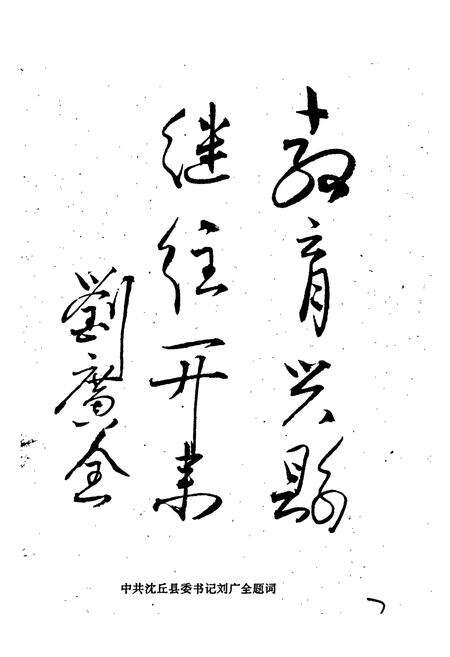 教育兴縣
继往开来
劉廣全
中共沈丘县委书记刘广全题词